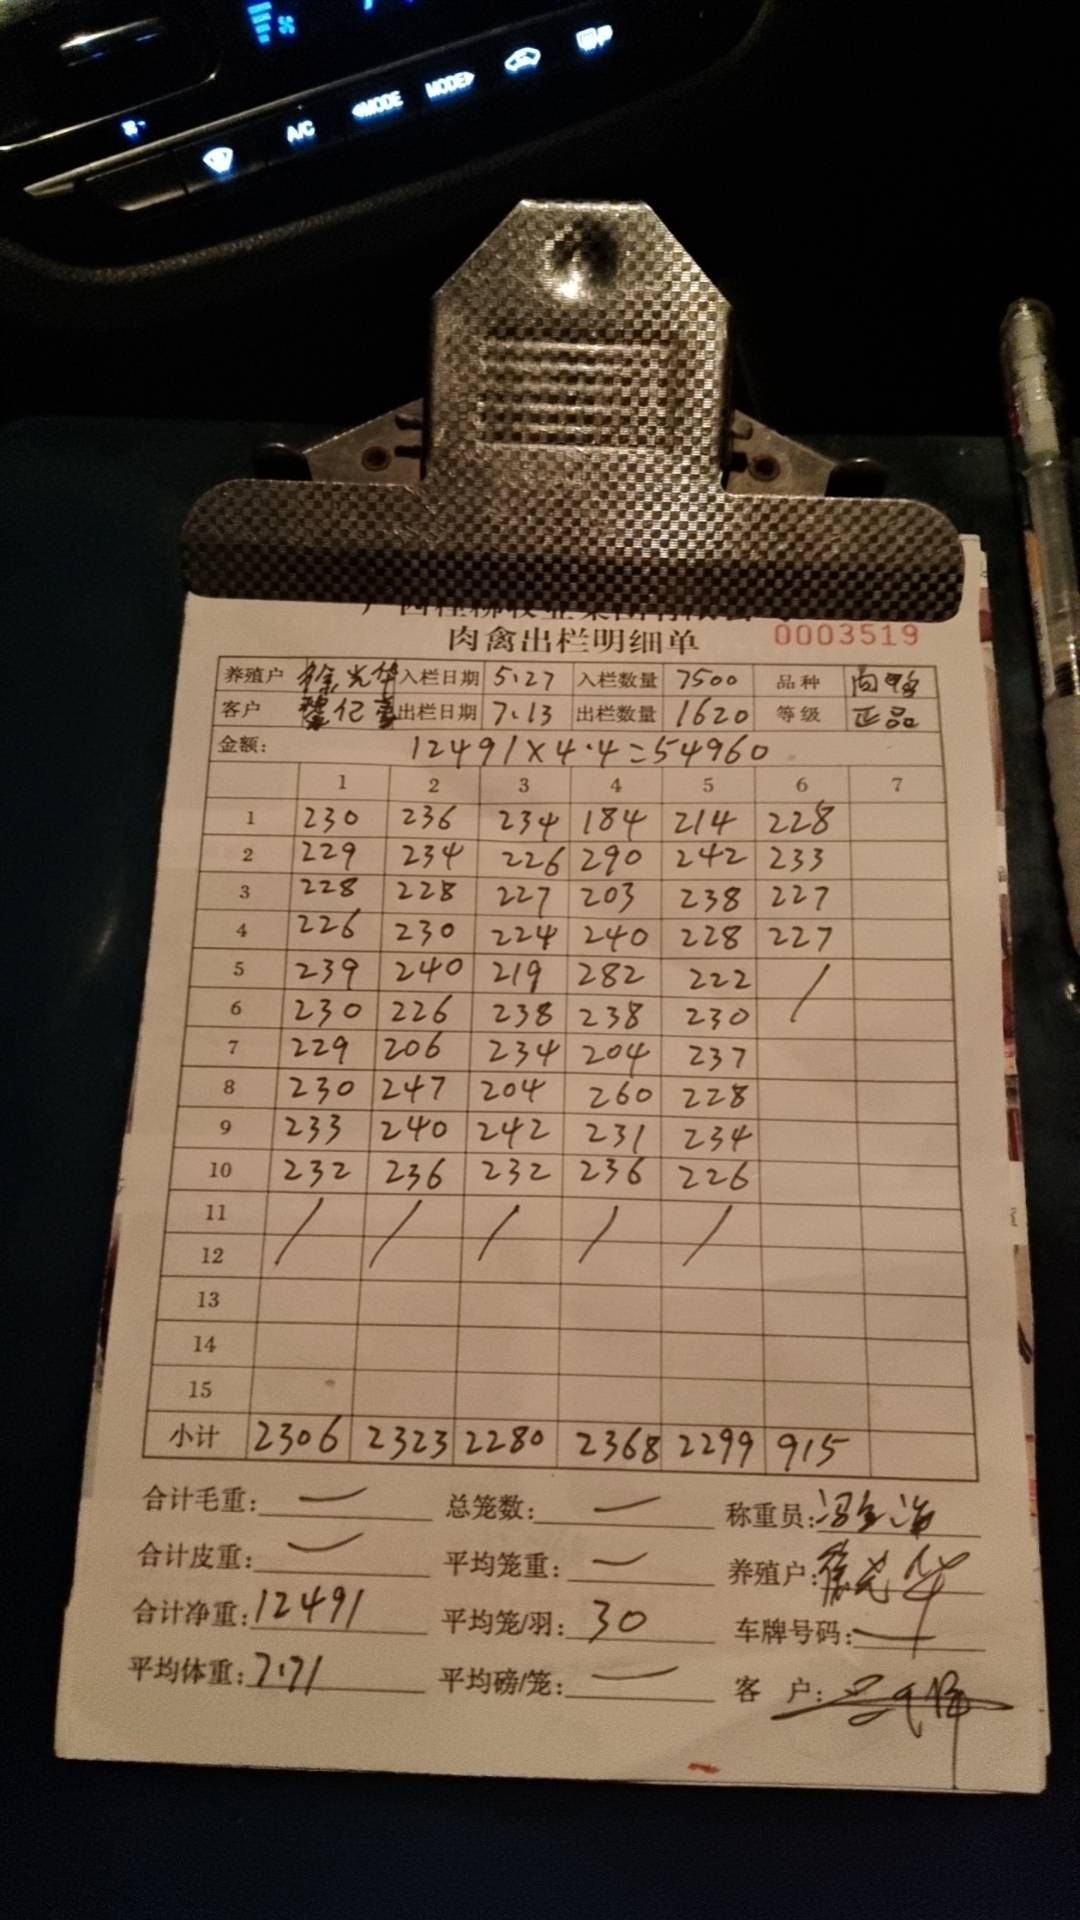 A/C
◀MODE
MODE▶
肉禽出栏明细单
0003519
养殖户 徐光华 入栏日期 5.27 入栏数量 7500 品种
客户 出栏日期 7.13 出栏数量 1620 等级 正品
金额: 12491×4.4=54960
1 2 3 4 5 6 7
1 230 236 234 184 214 228
2 229 234 226 290 242 233
3 228 228 227 203 238 227
4 226 230 224 240 228 227
5 239 240 219 282 222 /
6 230 226 238 238 230
7 229 206 234 204 237
8 230 247 204 260 228
9 233 240 242 231 234
10 232 236 232 236 226
11 / / / / /
12
13
14
15
小计 2306 2323 2280 2368 2299 915
合计毛重: — 总笼数: — 称重员:
合计皮重: — 平均笼重: — 养殖户: 徐光华
合计净重: 12491 平均笼/羽: 30 车牌号码: —
平均体重: 7.71 平均磅/笼: — 客 户: